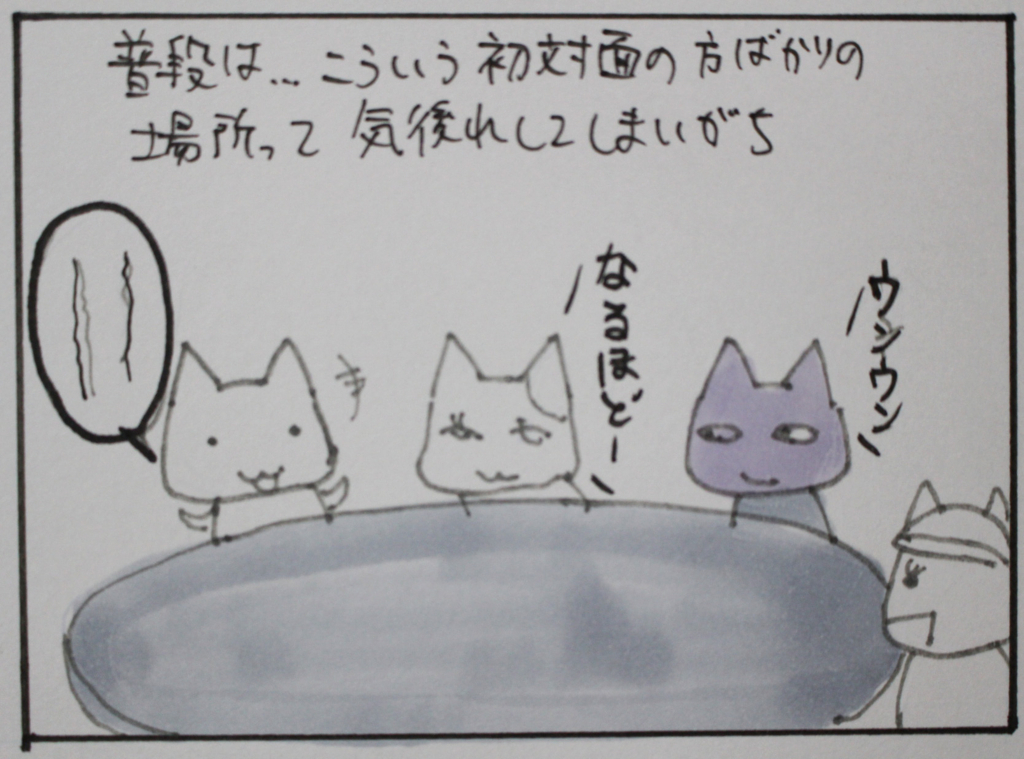 普段は…こういう初対面の方ばかりの
場所って気後れしてしまいがち
なるほどー
ウンウン